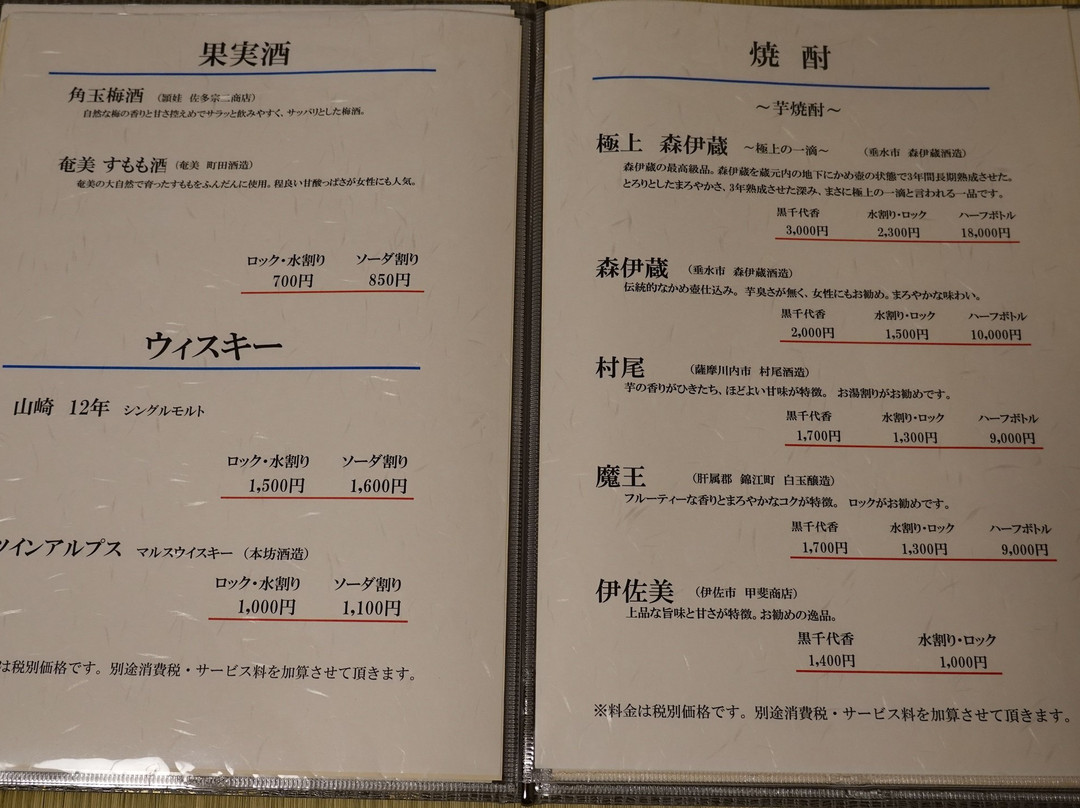 果実酒
角玉梅酒 （頴娃 佐多宗二商店）
自然な梅の香りと甘さ控えめでサラッと飲みやすく、サッパリとした梅酒。
奄美 すもも酒 （奄美 町田酒造）
奄美の大自然で育ったすももをふんだんに使用。程良い甘酸っぱさが女性にも人気。
ロック・水割り ソーダ割り
700円 850円
ウィスキー
山崎 12年 シングルモルト
ロック・水割り ソーダ割り
1,500円 1,600円
ツインアルプス マルスウイスキー （本坊酒造）
ロック・水割り ソーダ割り
1,000円 1,100円
は税別価格です。別途消費税・サービス料を加算させて頂きます。
焼 酎
～芋焼酎～
極上 森伊蔵 ～極上の一滴～ （垂水市 森伊蔵酒造）
森伊蔵の最高級品。森伊蔵を蔵元内の地下にかめ壺の状態で3年間長期熟成させた。
とろりとしたまろやかさ、3年熟成させた深み、まさに極上の一滴と言われる一品です。
黒千代香 水割り・ロック ハーフボトル
3,000円 2,300円 18,000円
森伊蔵 （垂水市 森伊蔵酒造）
伝統的なかめ壺仕込み。 芋臭さが無く、女性にもお勧め。まろやかな味わい。
黒千代香 水割り・ロック ハーフボトル
2,000円 1,500円 10,000円
村尾 （薩摩川内市 村尾酒造）
芋の香りがひきたち、ほどよい甘味が特徴。 お湯割りがお勧めです。
黒千代香 水割り・ロック ハーフボトル
1,700円 1,300円 9,000円
魔王 （肝属郡 錦江町 白玉醸造）
フルーティーな香りとまろやかなコクが特徴。 ロックがお勧めです。
黒千代香 水割り・ロック ハーフボトル
1,700円 1,300円 9,000円
伊佐美 （伊佐市 甲斐商店）
上品な旨味と甘さが特徴。お勧めの逸品。
黒千代香 水割り・ロック
1,400円 1,000円
※料金は税別価格です。別途消費税・サービス料を加算させて頂きます。